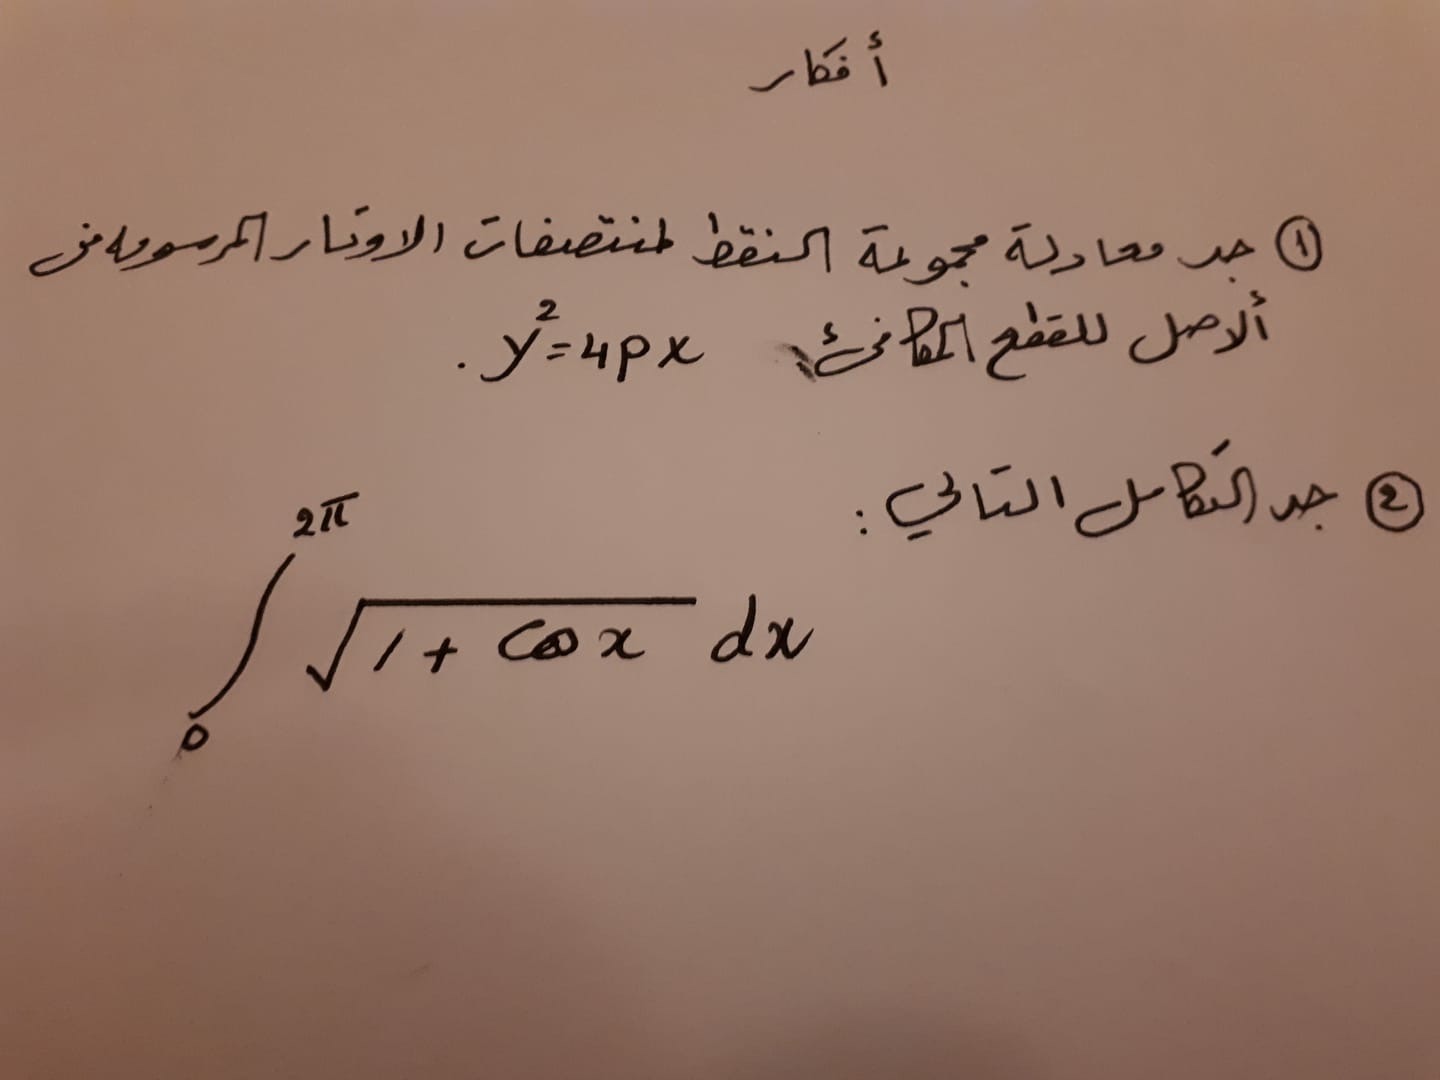 أفكار
① جد معادلة مجموعة النقط لمنتصفات الاوتار المرسومه من
ألاصل للقطع المكافئ y²=4px .
② جد التكامل التالي :
∫₀^2π √(1 + cos x) dx